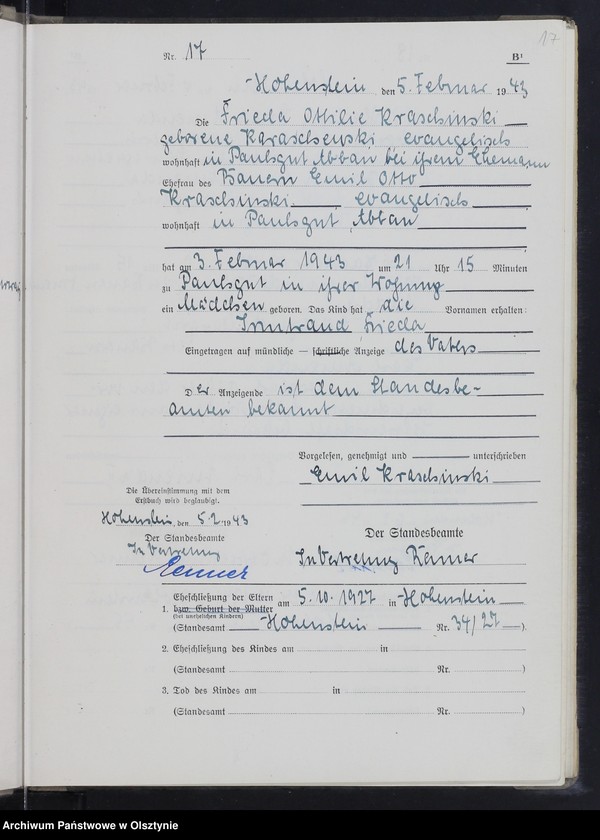 17
Nr. 17 B¹
Hohenstein den 5. Februar 1943
Die Frieda Ottilie Kraschinski
geborene Karaschewski evangelisch
wohnhaft in Paulsgut Abbau bei ihrem Ehemann
Ehefrau des Bauern Emil Otto
Kraschinski evangelisch
wohnhaft in Paulsgut Abbau
hat am 3. Februar 1943 um 21 Uhr 15 Minuten
zu Paulsgut in ihrer Wohnung
ein Mädchen geboren. Das Kind hat die Vornamen erhalten:
Irmtraud Frieda
Eingetragen auf mündliche — schriftliche Anzeige des Vaters
Der Anzeigende ist dem Standesbe-
amten bekannt
Vorgelesen, genehmigt und unterschrieben
Emil Kraschinski
Die Übereinstimmung mit dem
Erstbuch wird beglaubigt.
Hohenstein, den 5.2.1943
Der Standesbeamte
In Vertretung
Der Standesbeamte
In Vertretung
Eheschließung der Eltern am 5.10.1927 in Hohenstein
1. bzw. Geburt der Mutter
(bei unehelichen Kindern)
(Standesamt Hohenstein Nr. 34/27).
2. Eheschließung des Kindes am in
(Standesamt Nr. )
3. Tod des Kindes am in
(Standesamt Nr. )
Archiwum Państwowe w Olsztynie